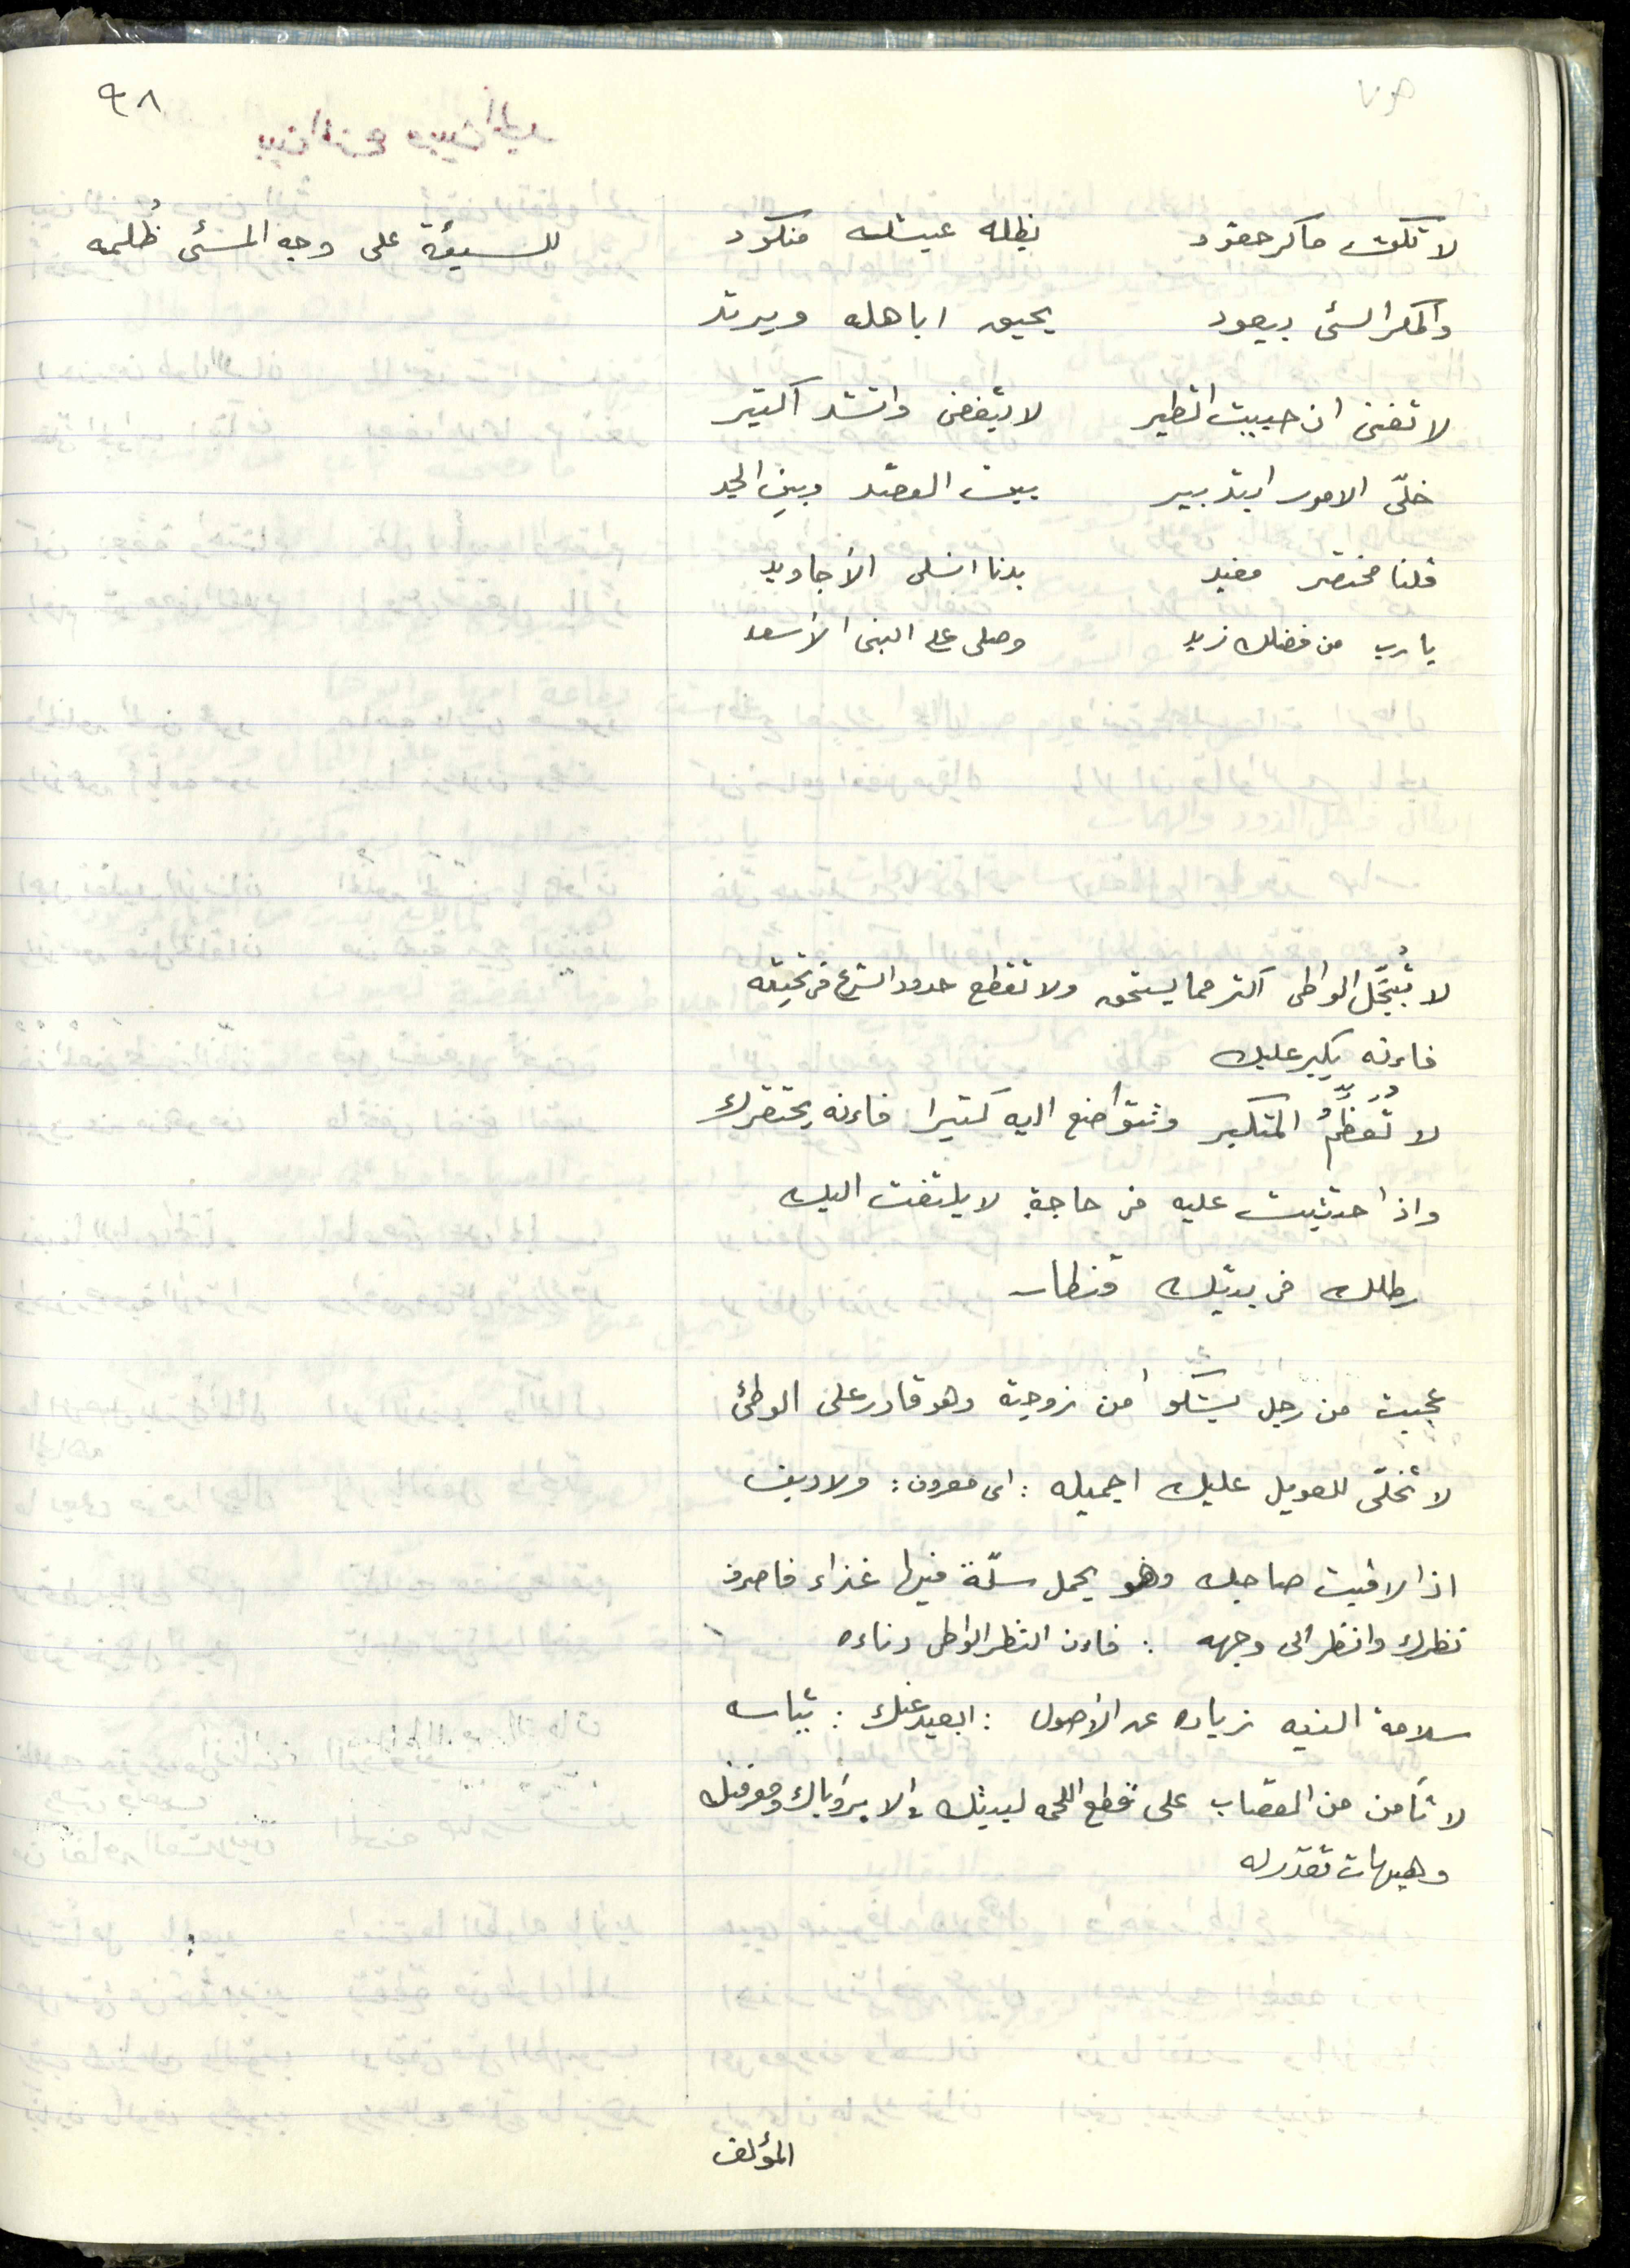 ٩٨
لا تكن ماكر حقود بظله عيشه منكود للسيئة على وجه المسئ ظُلمه
والمكر السئ بيعود يحيق اباهله ويرتد
لا تفنى ان حبيت اتطير لا تفضى واتشد اكتير
خلّى الامور ابتدبير بين الوعد وبين الجد
قلنا مختصر مفيد بدنا انسلى الأجاويد
يارب من فضلك زيد وصلى على النبى الأسعد
لا تُبجَّل الواطى اكتر مما يستحق ولا تقطع حدود الشرع فى تحيته
فاءنه يكبر عليك
لا تُعَظِّمُ المتكبر وتتواضع اليه كتيرا فاءنه يحتقرك
واذا حدثيت عليه فى حاجة لا يلتفت اليك
رطلك فى بديلك قنطار
عجبت من رجل يشكو من زوجته وهو قادر على الوطئ
لا تخلّى للعويل عليك اجميله : اى معروف : ولا دين
اذا لاقيت صاحبك وهو يحمل سلّة فيها غذاء فاصرف
نظرك وانظر الى وجهه : فاءن النظر الواطى دناءه
سلامة النيه زياده عن الأصول : ابعيد عنك : تياسه
لا تأمن من القصاب على قطع اللحمه لبيتك والا براياك ومعرفتك
وهيهات تقدر له
المؤلف